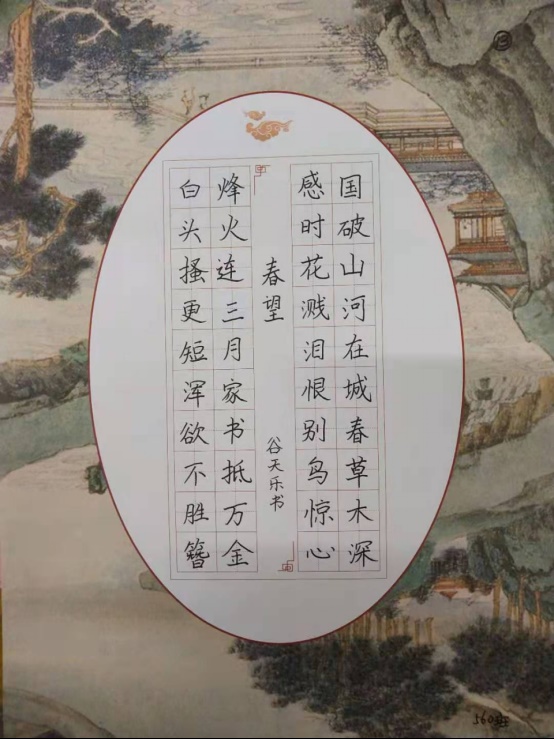 国破山河在城春草木深
感时花溅泪恨别鸟惊心
春望
谷天乐书
烽火连三月家书抵万金
白头搔更短浑欲不胜簪
560班